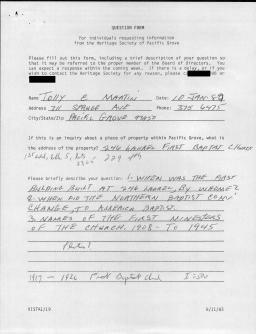 QUESTION FORM
for individuals requesting information
from the Heritage Society of Pacific Grove
Please fill out this form, including a brief description of your question so
that it may be referred to the proper member of the Board of Directors. You
can expect a response within the coming week. If there is a delay, or if you
wish to contact the Heritage Society for any reason, please
Name Tolly E MARTIN Date: 10 JAN 89
Address: 311 SPRUCE AVE Phone: 375 6475
City/State/Zip PACIFIC GROVE 93950
If this is an inquiry about a place of property within Pacific Grove, what is
the address of the property? 246 LAUREL FIRST BAPTIST CHURCH
Please briefly describe your question: 1- WHEN WAS THE FIRST
BUILDING BUILT AT 246 LAUREL, BY WHOM?
2 WHEN DID THE NORTHERN BAPTIST CONV
CHANGE TO AMERICAN BAPTIST.
3. NAMES OF THE FIRST MINISTERS
OF THE CHURCH. 1908- TO 1945
1917 - 1926 First Baptist Church
VISTAI/19